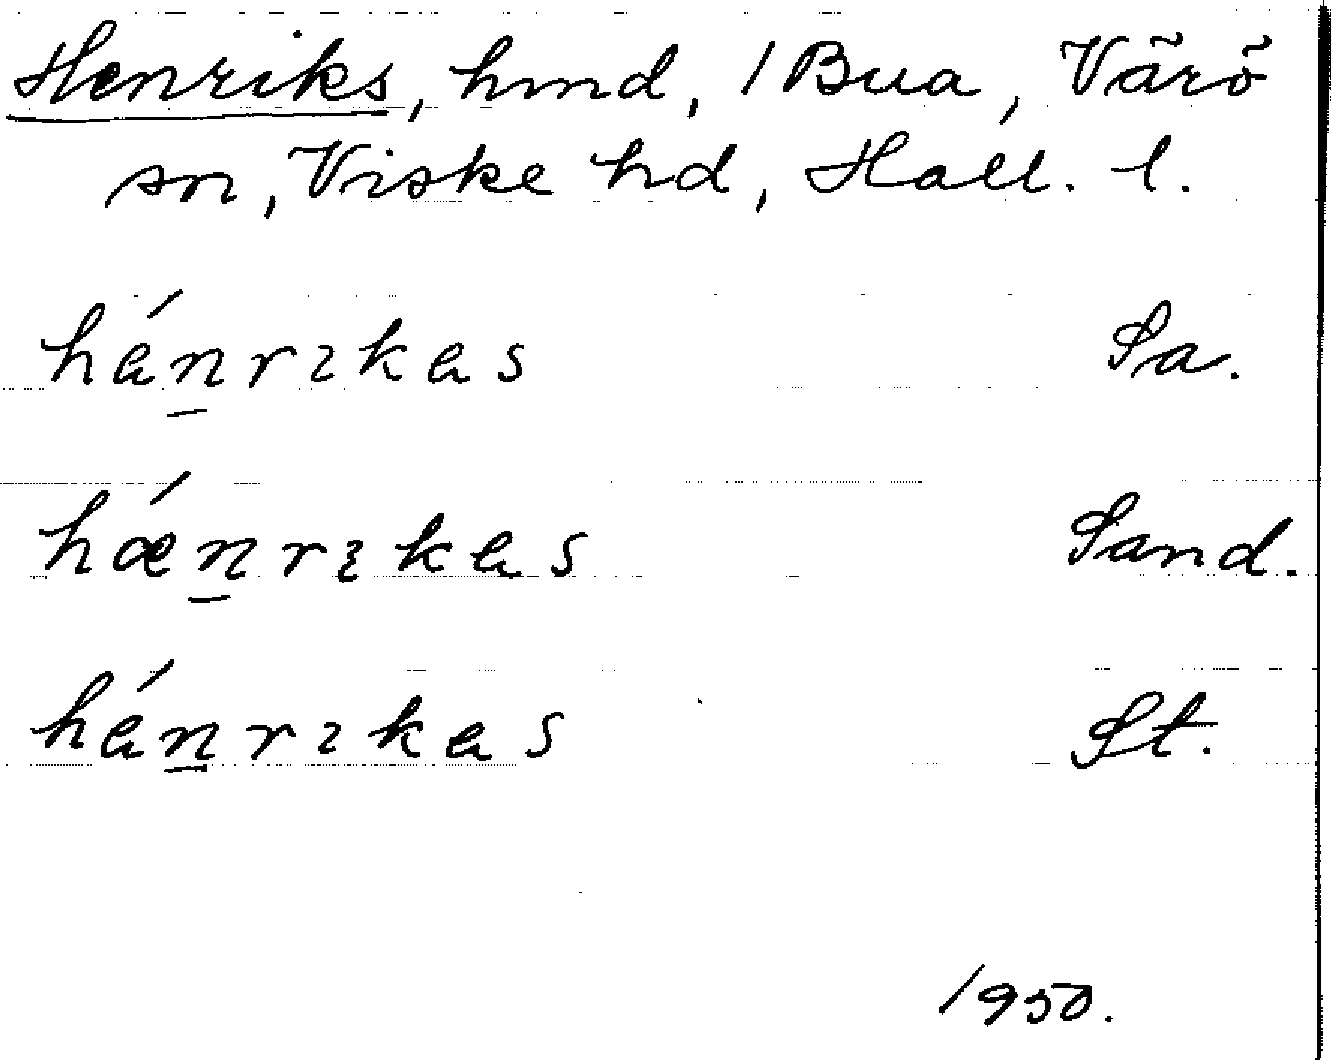 Henriks, hmd, 1 Bua, Värö
sn, Viske hd, Hall. l.
hénrıkas Sa.
hǽnrıkas Sand.
hénrıkas St.
1950.